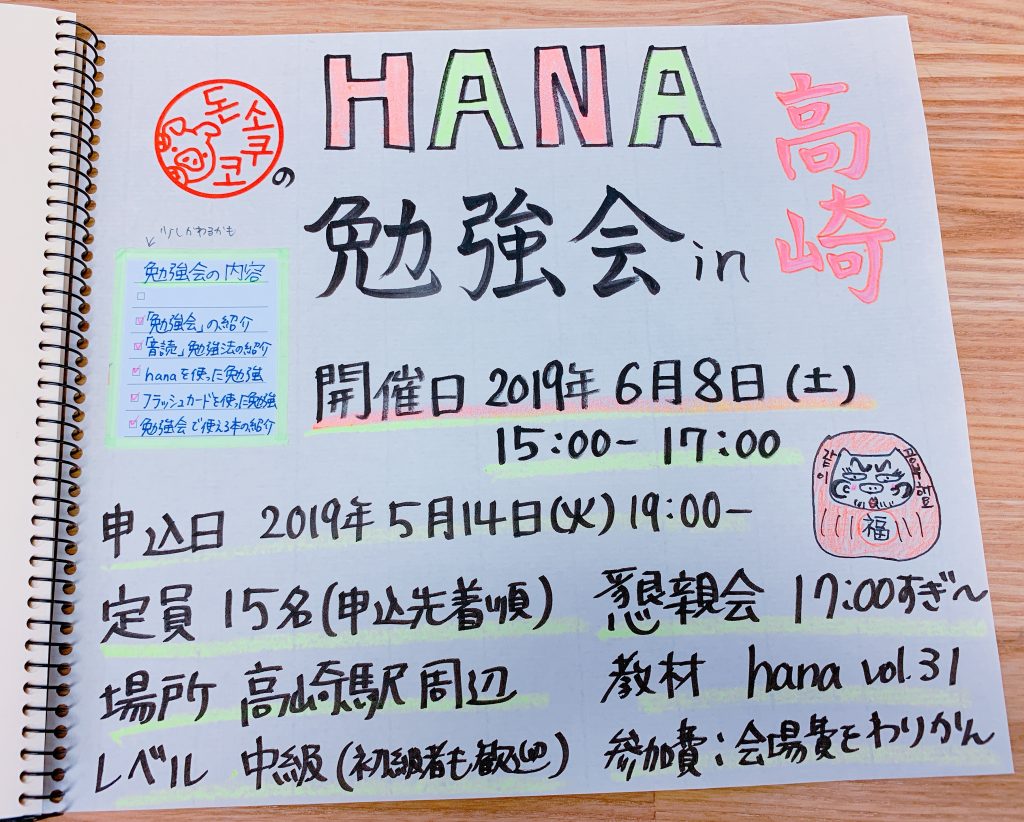 돈
소
쿠
코
の
HANA
勉強会 in
高崎
少しかわるかも
勉強会の内容
「勉強会」の紹介
「音読」勉強法の紹介
hanaを使った勉強
フラッシュカードを使った勉強
勉強会で使える本の紹介
開催日 2019年 6月8日(土)
15:00-17:00
福
申込日 2019年5月14日(火)19:00-
定員 15名(申込先着順)
懇親会 17:00すぎ~
場所 高崎駅周辺
教材 hana vol.31
レベル 中級(初級者も歓迎)
参加費:会場費をわりかん